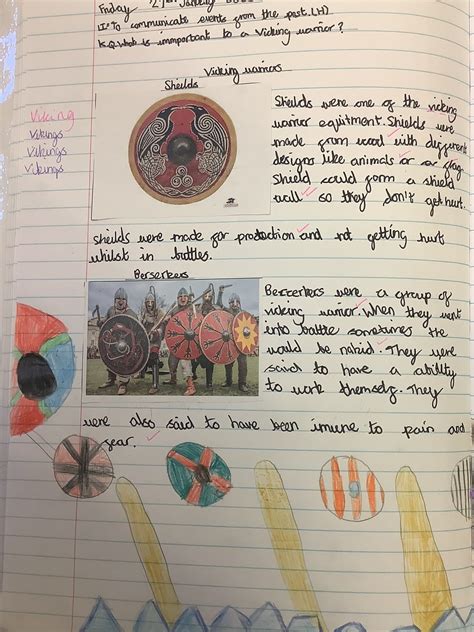 Friday 21st January
LI: To communicate events from the past. (H)
K.Q. What is immportant to a Vicking warrior?
Vicking warriors
Sheilds
Viking
Vikings
Vikings
Vikings
Sheilds were one of the vicking
warrior equitment. Sheilds were
made from wood with differents
designs like animals or a flag.
Sheild could form a sheild
wall so they don't get hurt.
Sheilds were made for protection and not getting hurt
whilst in battles.
Berserkers
Bercerkers were a group of
vicking warrior. When they went
into battle sometimes He
would be nakid. They were
said to have a ability
to work themselg. They
were also said to have been imune to pain and
fear.